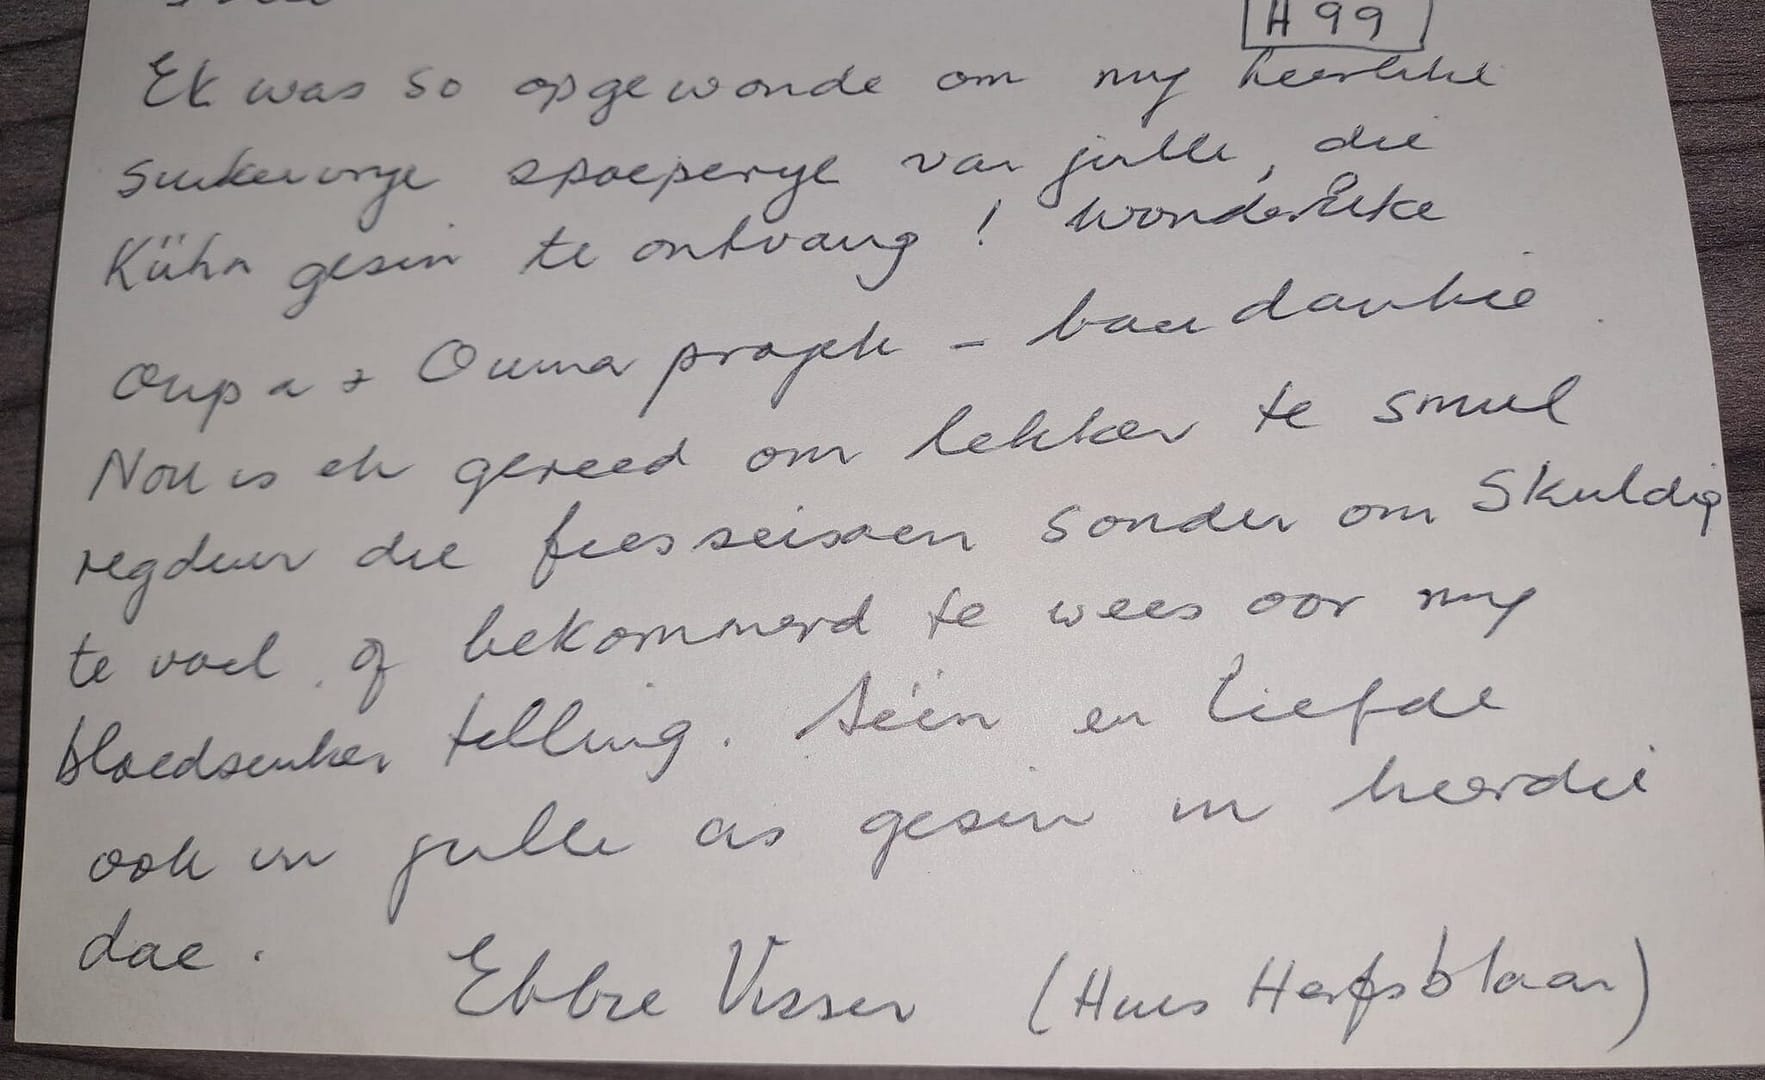 H 99
Ek was so opgewonde om my heerlike
suikervrye spoeperye van julle, die
Kühn gesin te ontvang! Wonderlike
Oupa + Ouma projek - baie dankie
Nou is ek gereed om lekker te smul
regdeur die feesseisoen sonder om skuldig
te voel of bekommerd te wees oor my
bloedsuiker telling. Seën en liefde
ook in julle as gesin in hierdie
dae.
Ebbie Visser (Huis Herfsblaar)